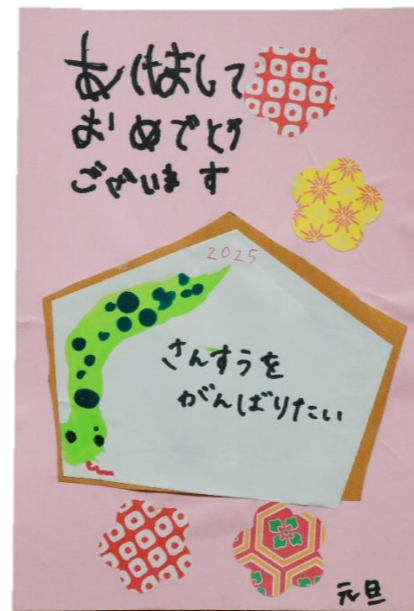 あけまして
おめでとう
ございます
2025
さんすうを
がんばりたい
元旦